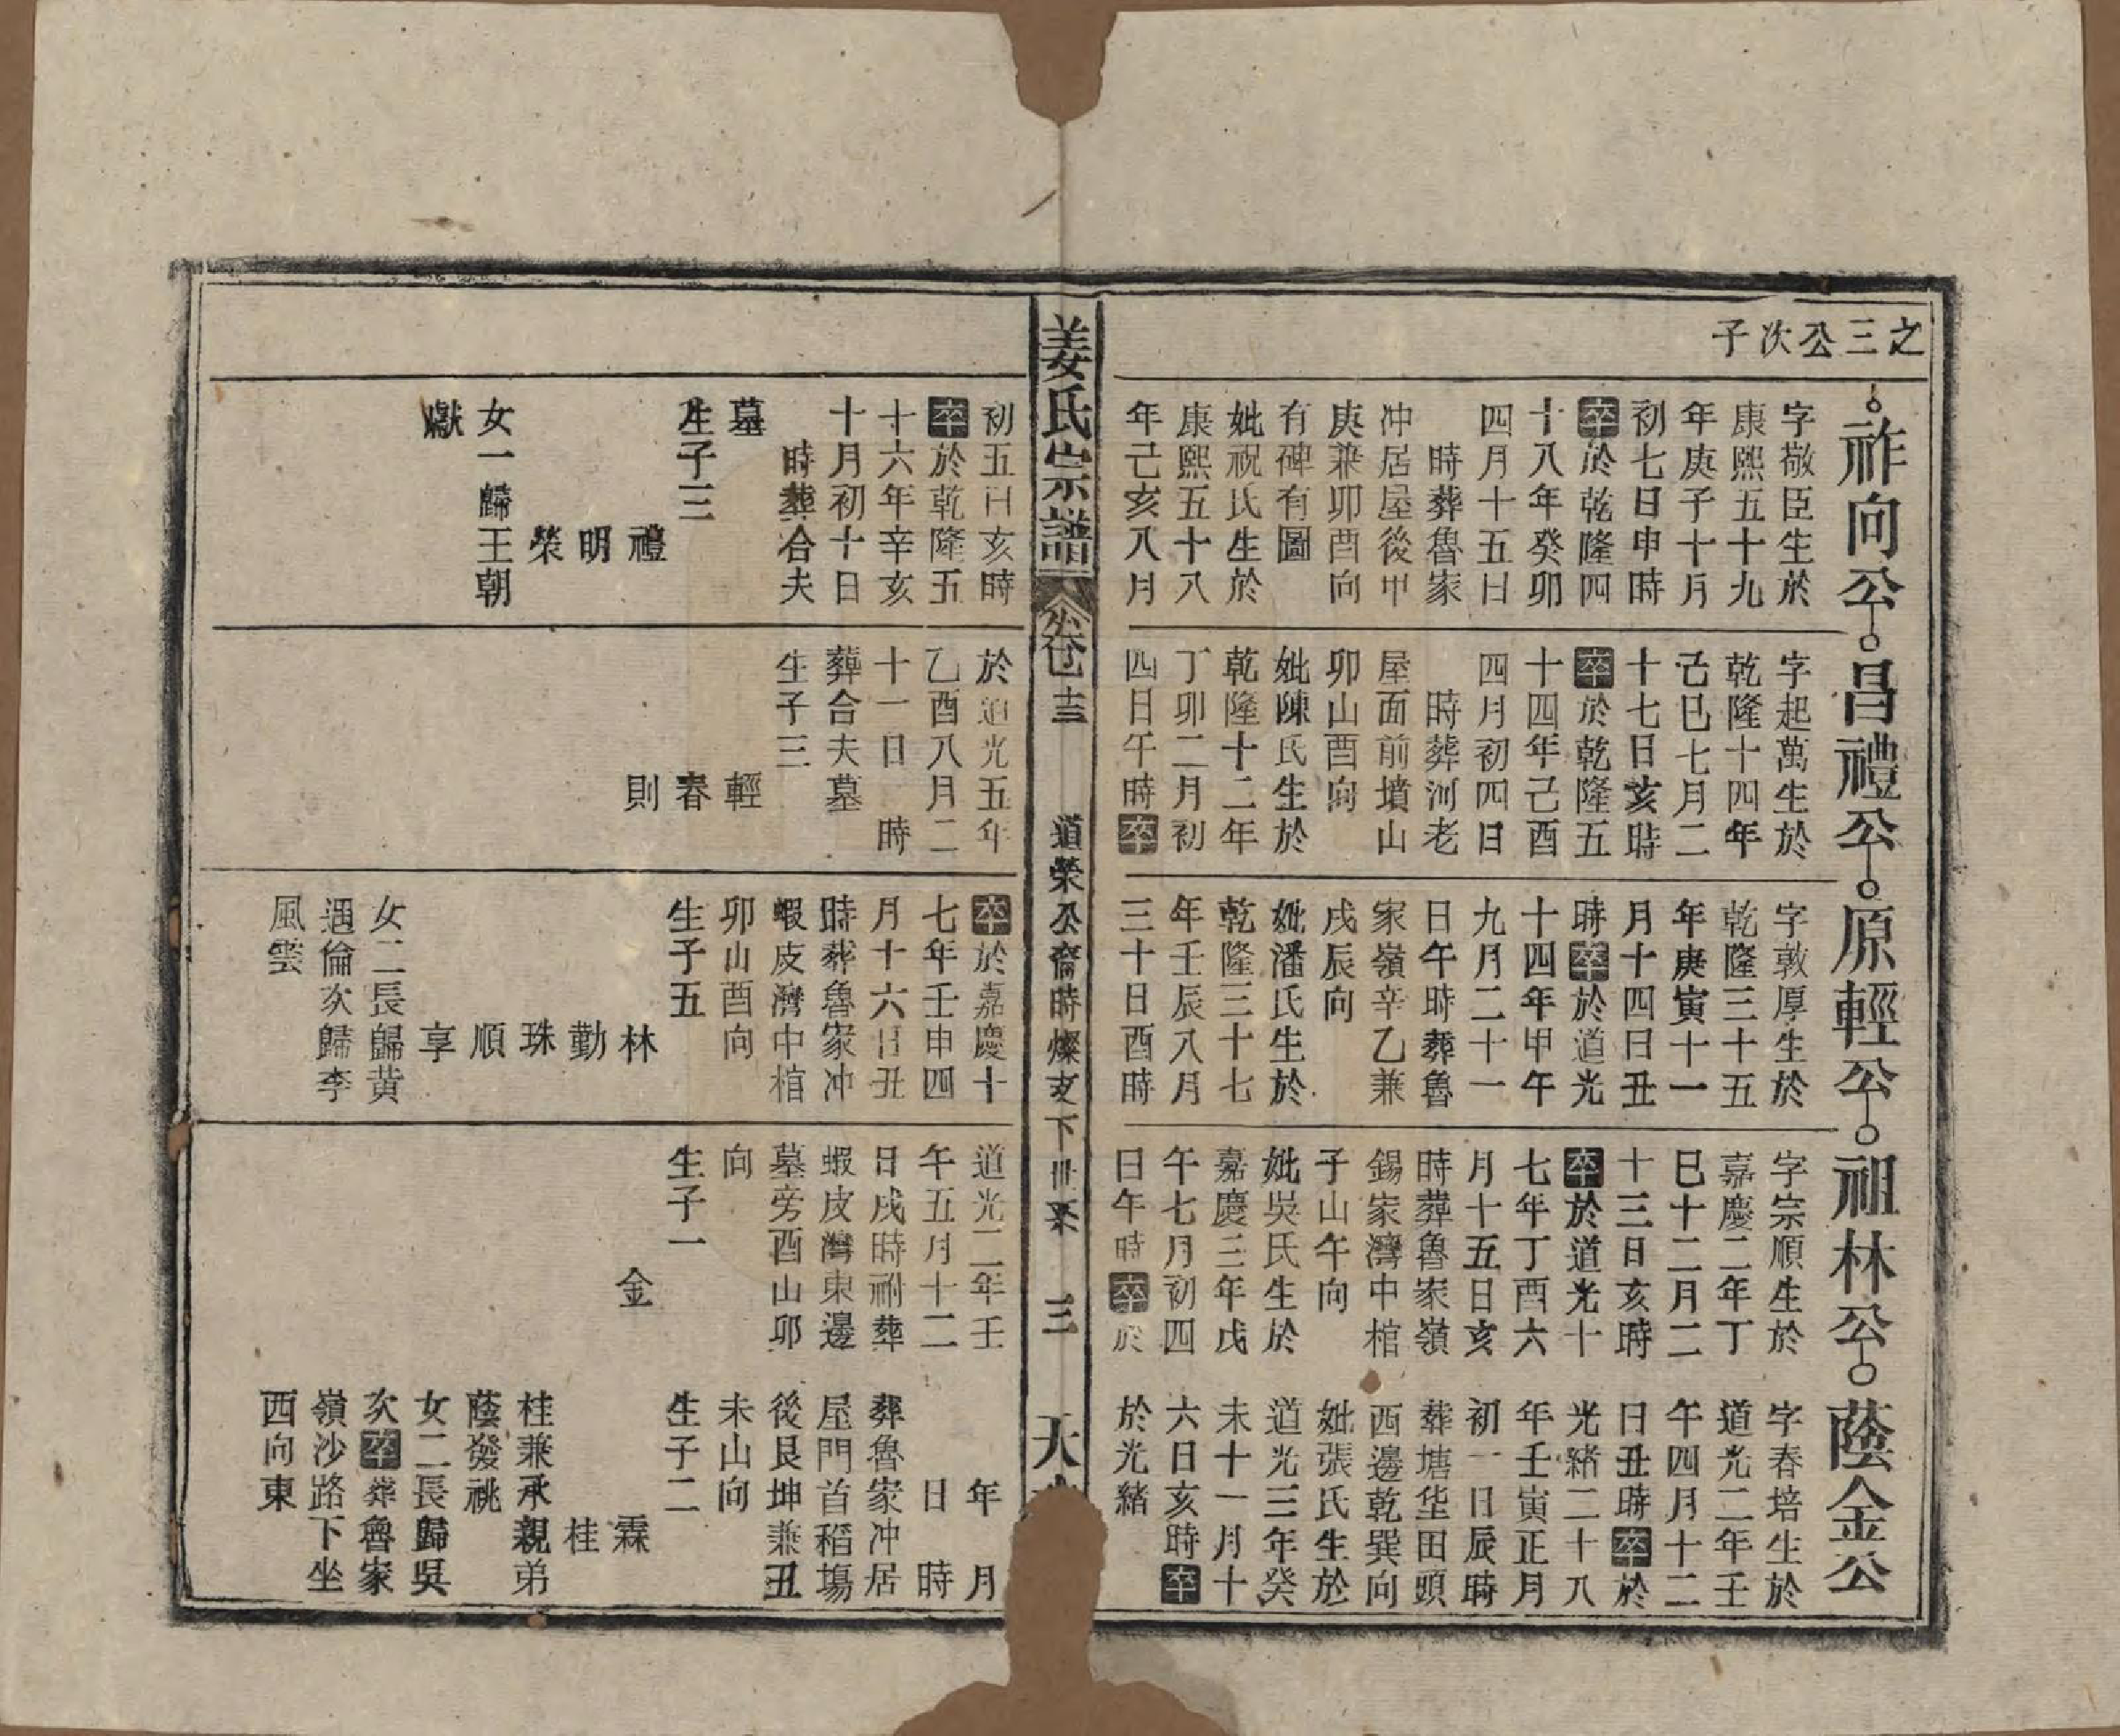 之三公次子
祚向公
字敬臣生於
康熙五十九
年庚子十月
初七日申時
卒於乾隆四
十八年癸卯
四月十五日
時葬魯家
冲居屋後甲
庚兼卯酉向
有碑有圖
妣祝氏生於
康熙五十八
年己亥八月
初五日亥時
卒於乾隆五
十六年辛亥
十月初十日
時葬合夫
墓
生子三
禮
明
榮
女一歸王朝
獻
昌禮公
字起萬生於
乾隆十四年
己巳七月二
十七日亥時
卒於乾隆五
十四年己酉
四月初四日
時葬河老
屋面前墳山
卯山酉向
妣陳氏生於
乾隆十二年
丁卯二月初
四日午時卒
於道光五年
乙酉八月二
十一日 時
葬合夫墓
生子三
輕
春
則
原輕公
字敦厚生於
乾隆三十五
年庚寅十一
月十四日丑
時卒於道光
十四年甲午
九月二十一
日午時葬魯
家嶺辛乙兼
戌辰向
妣潘氏生於
乾隆三十七
年壬辰八月
三十日酉時
卒於嘉慶十
七年壬申四
月十六日丑
時葬魯家冲
蝦皮灣中棺
卯山酉向
生子五
林
勤
珠
順
享
女二長歸黄
遇倫次歸李
風雲
祖林公
字宗順生於
嘉慶二年丁
巳十二月二
十三日亥時
卒於道光十
七年丁酉六
月十五日亥
時葬魯家嶺
錫家灣中棺
子山午向
妣吳氏生於
嘉慶三年戊
午七月初四
日午時卒於
道光二年壬
午五月十二
日戌時祔葬
蝦皮灣東邊
墓旁酉山卯
向
生子一
金
蔭金公
字春培生於
道光二年壬
午四月十二
日丑時卒於
光緒二十八
年壬寅正月
初一日辰時
葬塘垡田頭
西邊乾巽向
妣張氏生於
道光三年癸
未十一月十
六日亥時卒
於光緒
年 月
日 時
葬魯家冲居
屋門首稻場
後艮坤兼丑
未山向
生子二
霖
桂
桂兼承親弟
蔭發祧
女二長歸吳
次卒葬魯家
嶺沙路下坐
西向東
姜氏宗譜
卷十三
道榮公裔時燦支下世系
三
天